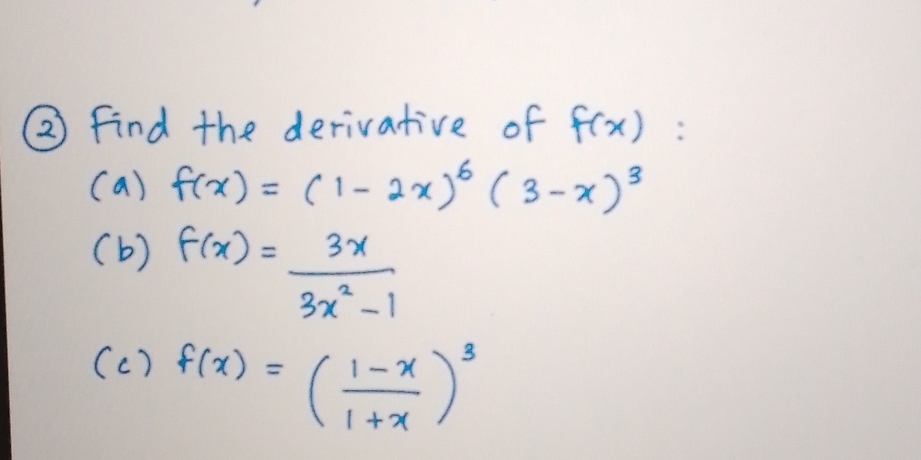 ② Find the derivative of f(x) :
(a) f(x) = (1-2x)⁶ (3-x)³
(b) f(x) = 3x / 3x²-1
(c) f(x) = (1-x / 1+x)³